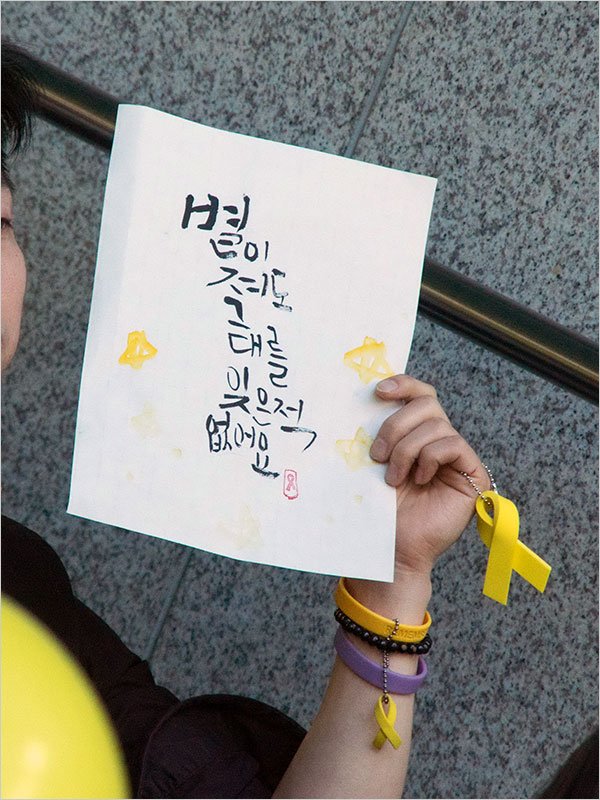 별이
져도
그대를
잊은적
없어요